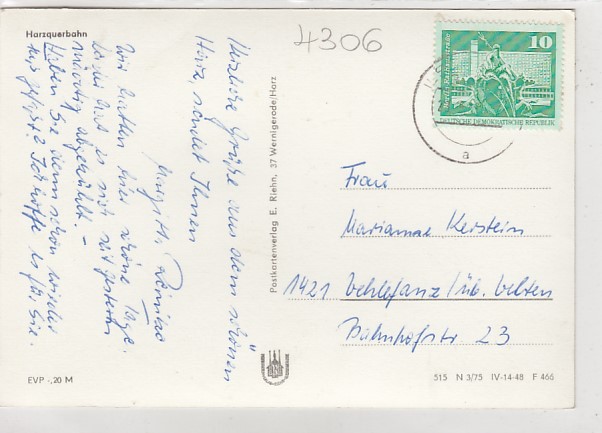 Harzquerbahn
4306
Herzliche Grüße aus dem schönen
Harz, sendet Ihnen
Wir hatten hier schöne Tage.
hat es sich seit gestern
abgekühlt. –
Haben Sie denn schon wieder
Ich hoffe es für Sie.
Postkartenverlag E. Riehn, 37 Wernigerode/Harz
10
DEUTSCHE DEMOKRATISCHE REPUBLIK
a
Frau
Marianne Kerstein
1421 Vehlefanz/üb. Velten
Bahnhofstr 23
EVP -,20 M
515 N 3/75 IV-14-48 F 466